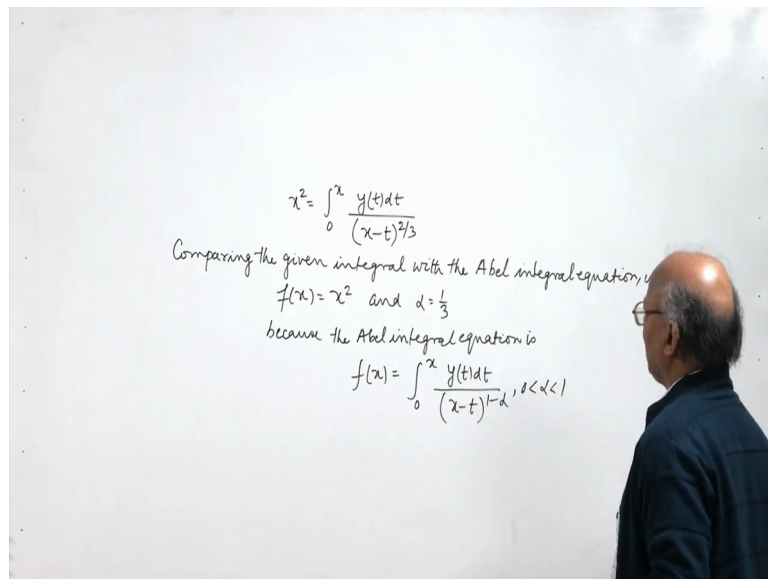 x² = ∫₀ˣ y(t)dt / (x-t)^2/3
Comparing the given integral with the Abel integral equation,
f(x) = x² and α = 1/3
because the Abel integral equation is
f(x) = ∫₀ˣ y(t)dt / (x-t)^1-α , 0<α<1